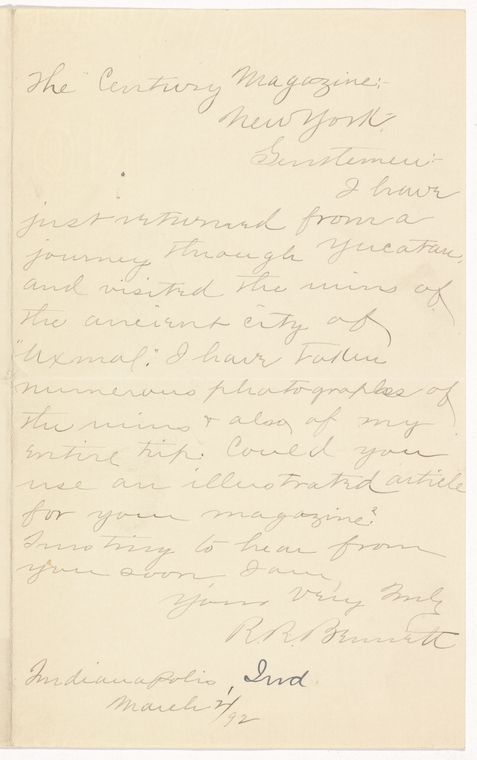 The Century Magazine:-
New York.
Gentlemen:-
I have
just returned from a
journey through Yucatan,
and visited the ruins of
the ancient city of
"Uxmal". I have taken
numerous photographs of
the ruins & also of my
entire trip. Could you
use an illustrated article
for your magazine?
Trusting to hear from
you soon I am
Yours very truly
R. R. Bennett
Indianapolis, Ind
March /92